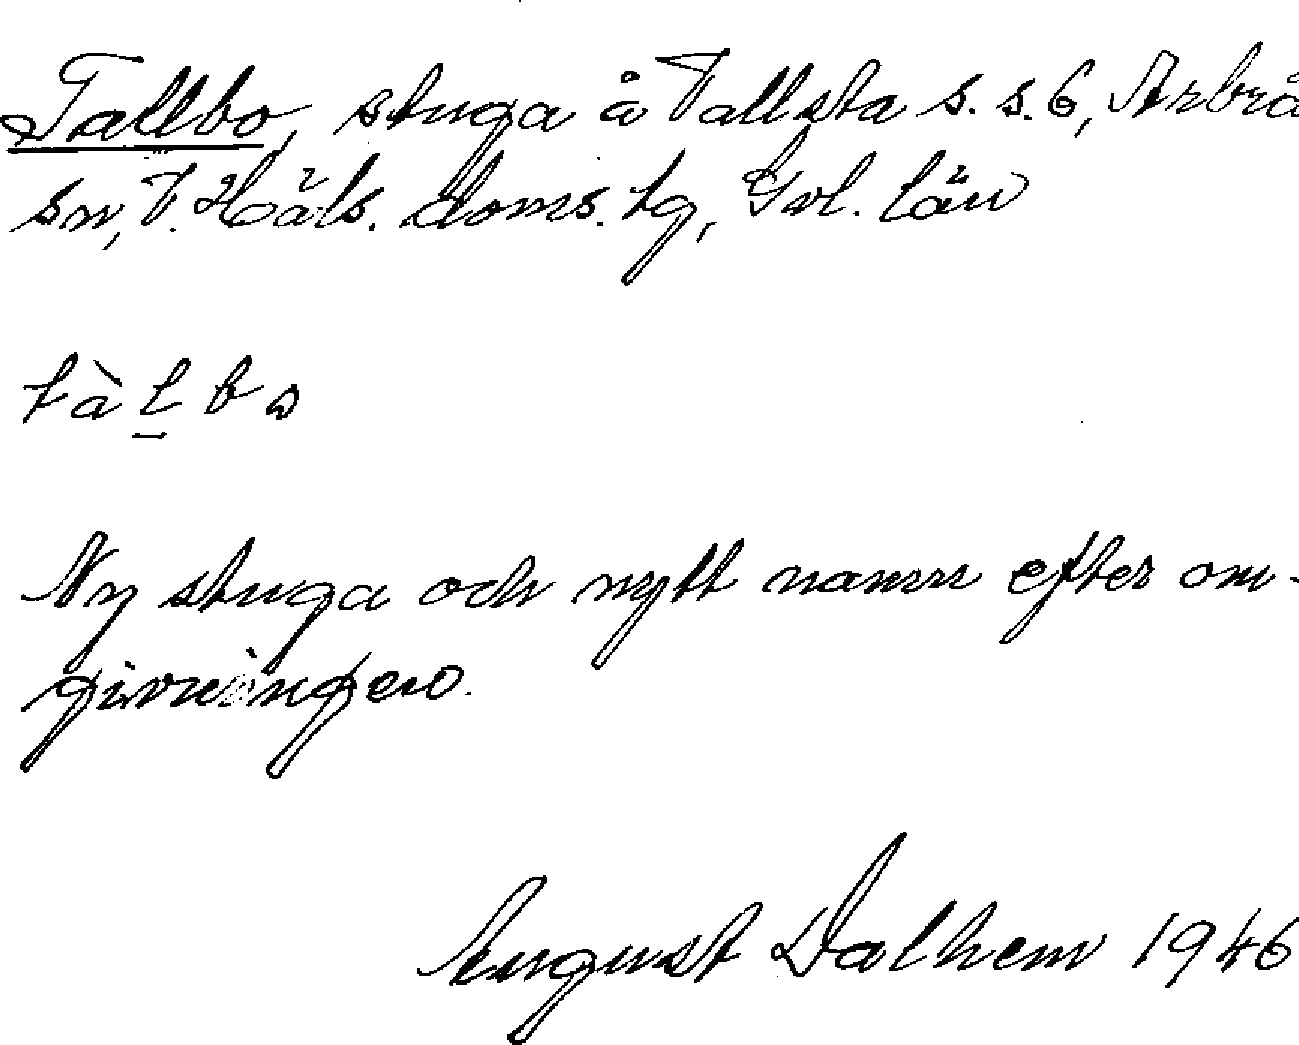 Tallbo, stuga å Tallsta s. s. 6, Arbrå
sn, V. Häls. doms. tg, Gvl. län
tàl̲bo
Ny stuga och nytt namn efter om-
givningen.
August Dalhem 1946